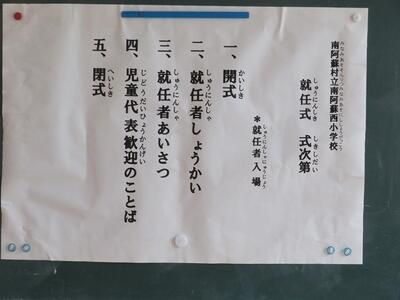 南阿蘇村立南阿蘇西小学校
就任式　式次第
＊就任者入場
一、開式
二、就任者しょうかい
三、就任者あいさつ
四、児童代表歓迎のことば
五、閉式